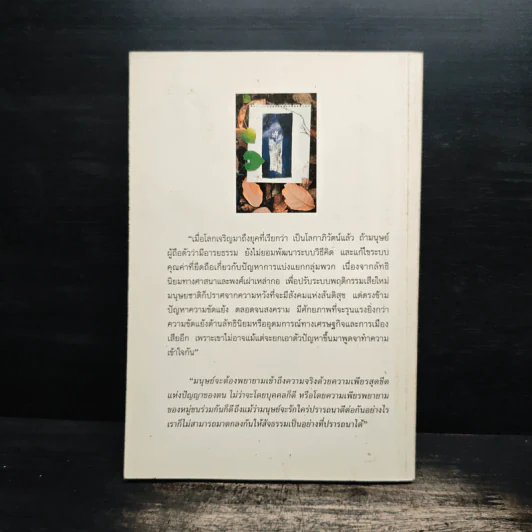 "เมื่อโลกเจริญมาถึงยุคที่เรียกว่า เป็นโลกาภิวัตน์แล้ว ถ้ามนุษย์
ผู้ถือตัวว่ามีอารยธรรม ยังไม่ยอมพัฒนาระบบวิธีคิด และแก้ไขระบบ
คุณค่าที่ยึดถือเกี่ยวกับปัญหาการแบ่งแยกกลุ่มพวก เนื่องจากลัทธิ
นิยมทางศาสนาและพงศ์เผ่าเหล่ากอ เพื่อปรับระบบพฤติกรรมเสียใหม่
มนุษยชาติก็ปราศจากความหวังที่จะมีสังคมแห่งสันติสุข แต่ตรงข้าม
ปัญหาความขัดแย้ง ตลอดจนสงคราม มีศักยภาพที่จะรุนแรงยิ่งกว่า
ความขัดแย้งด้านลัทธินิยมหรืออุดมการณ์ทางเศรษฐกิจและการเมือง
เสียอีก เพราะเขาไม่อาจแม้แต่จะยกเอาตัวปัญหาขึ้นมาพูดจาทำความ
เข้าใจกัน"
"มนุษย์จะต้องพยายามเข้าถึงความจริงด้วยความเพียรสุดขีด
แห่งปัญญาของตน ไม่ว่าจะโดยบุคคลก็ดี หรือโดยความเพียรพยายาม
ของหมู่ชนร่วมกันก็ดี ถึงแม้ว่ามนุษย์จะรักใคร่ปรารถนาดีต่อกันอย่างไร
เราก็ไม่สามารถมาตกลงกันให้สัจธรรมเป็นอย่างที่ปรารถนาได้"